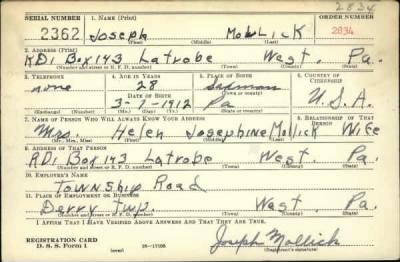 2834
SERIAL NUMBER 1. NAME (Print) ORDER NUMBER
2362 Joseph Mollick 2834
(First) (Middle) (Last)
2. ADDRESS (Print)
RD1 Box 143 Latrobe West. Pa.
(Number and street or R. F. D. number) (Town) (County) (State)
3. TELEPHONE 4. AGE IN YEARS 5. PLACE OF BIRTH 6. COUNTRY OF CITIZENSHIP
none 28
DATE OF BIRTH (Town or county)
3-7-1912 Pa U.S.A.
(Exchange) (Number) (Mo.) (Day) (Yr.) (State or country)
7. NAME OF PERSON WHO WILL ALWAYS KNOW YOUR ADDRESS 8. RELATIONSHIP OF THAT PERSON
Mrs. Helen Josephine Mollick Wife
(Mr., Mrs., Miss) (First) (Middle) (Last)
9. ADDRESS OF THAT PERSON
RD1 Box 143 Latrobe West. Pa.
(Number and street or R. F. D. number) (Town) (County) (State)
10. EMPLOYER'S NAME
Township Road
11. PLACE OF EMPLOYMENT OR BUSINESS
Derry Twp. West. Pa.
(Number and street or R. F. D. number) (Town) (County) (State)
I AFFIRM THAT I HAVE VERIFIED ABOVE ANSWERS AND THAT THEY ARE TRUE.
REGISTRATION CARD
D. S. S. Form 1 (over) 16-17105 Joseph Mollick
(Registrant's signature)